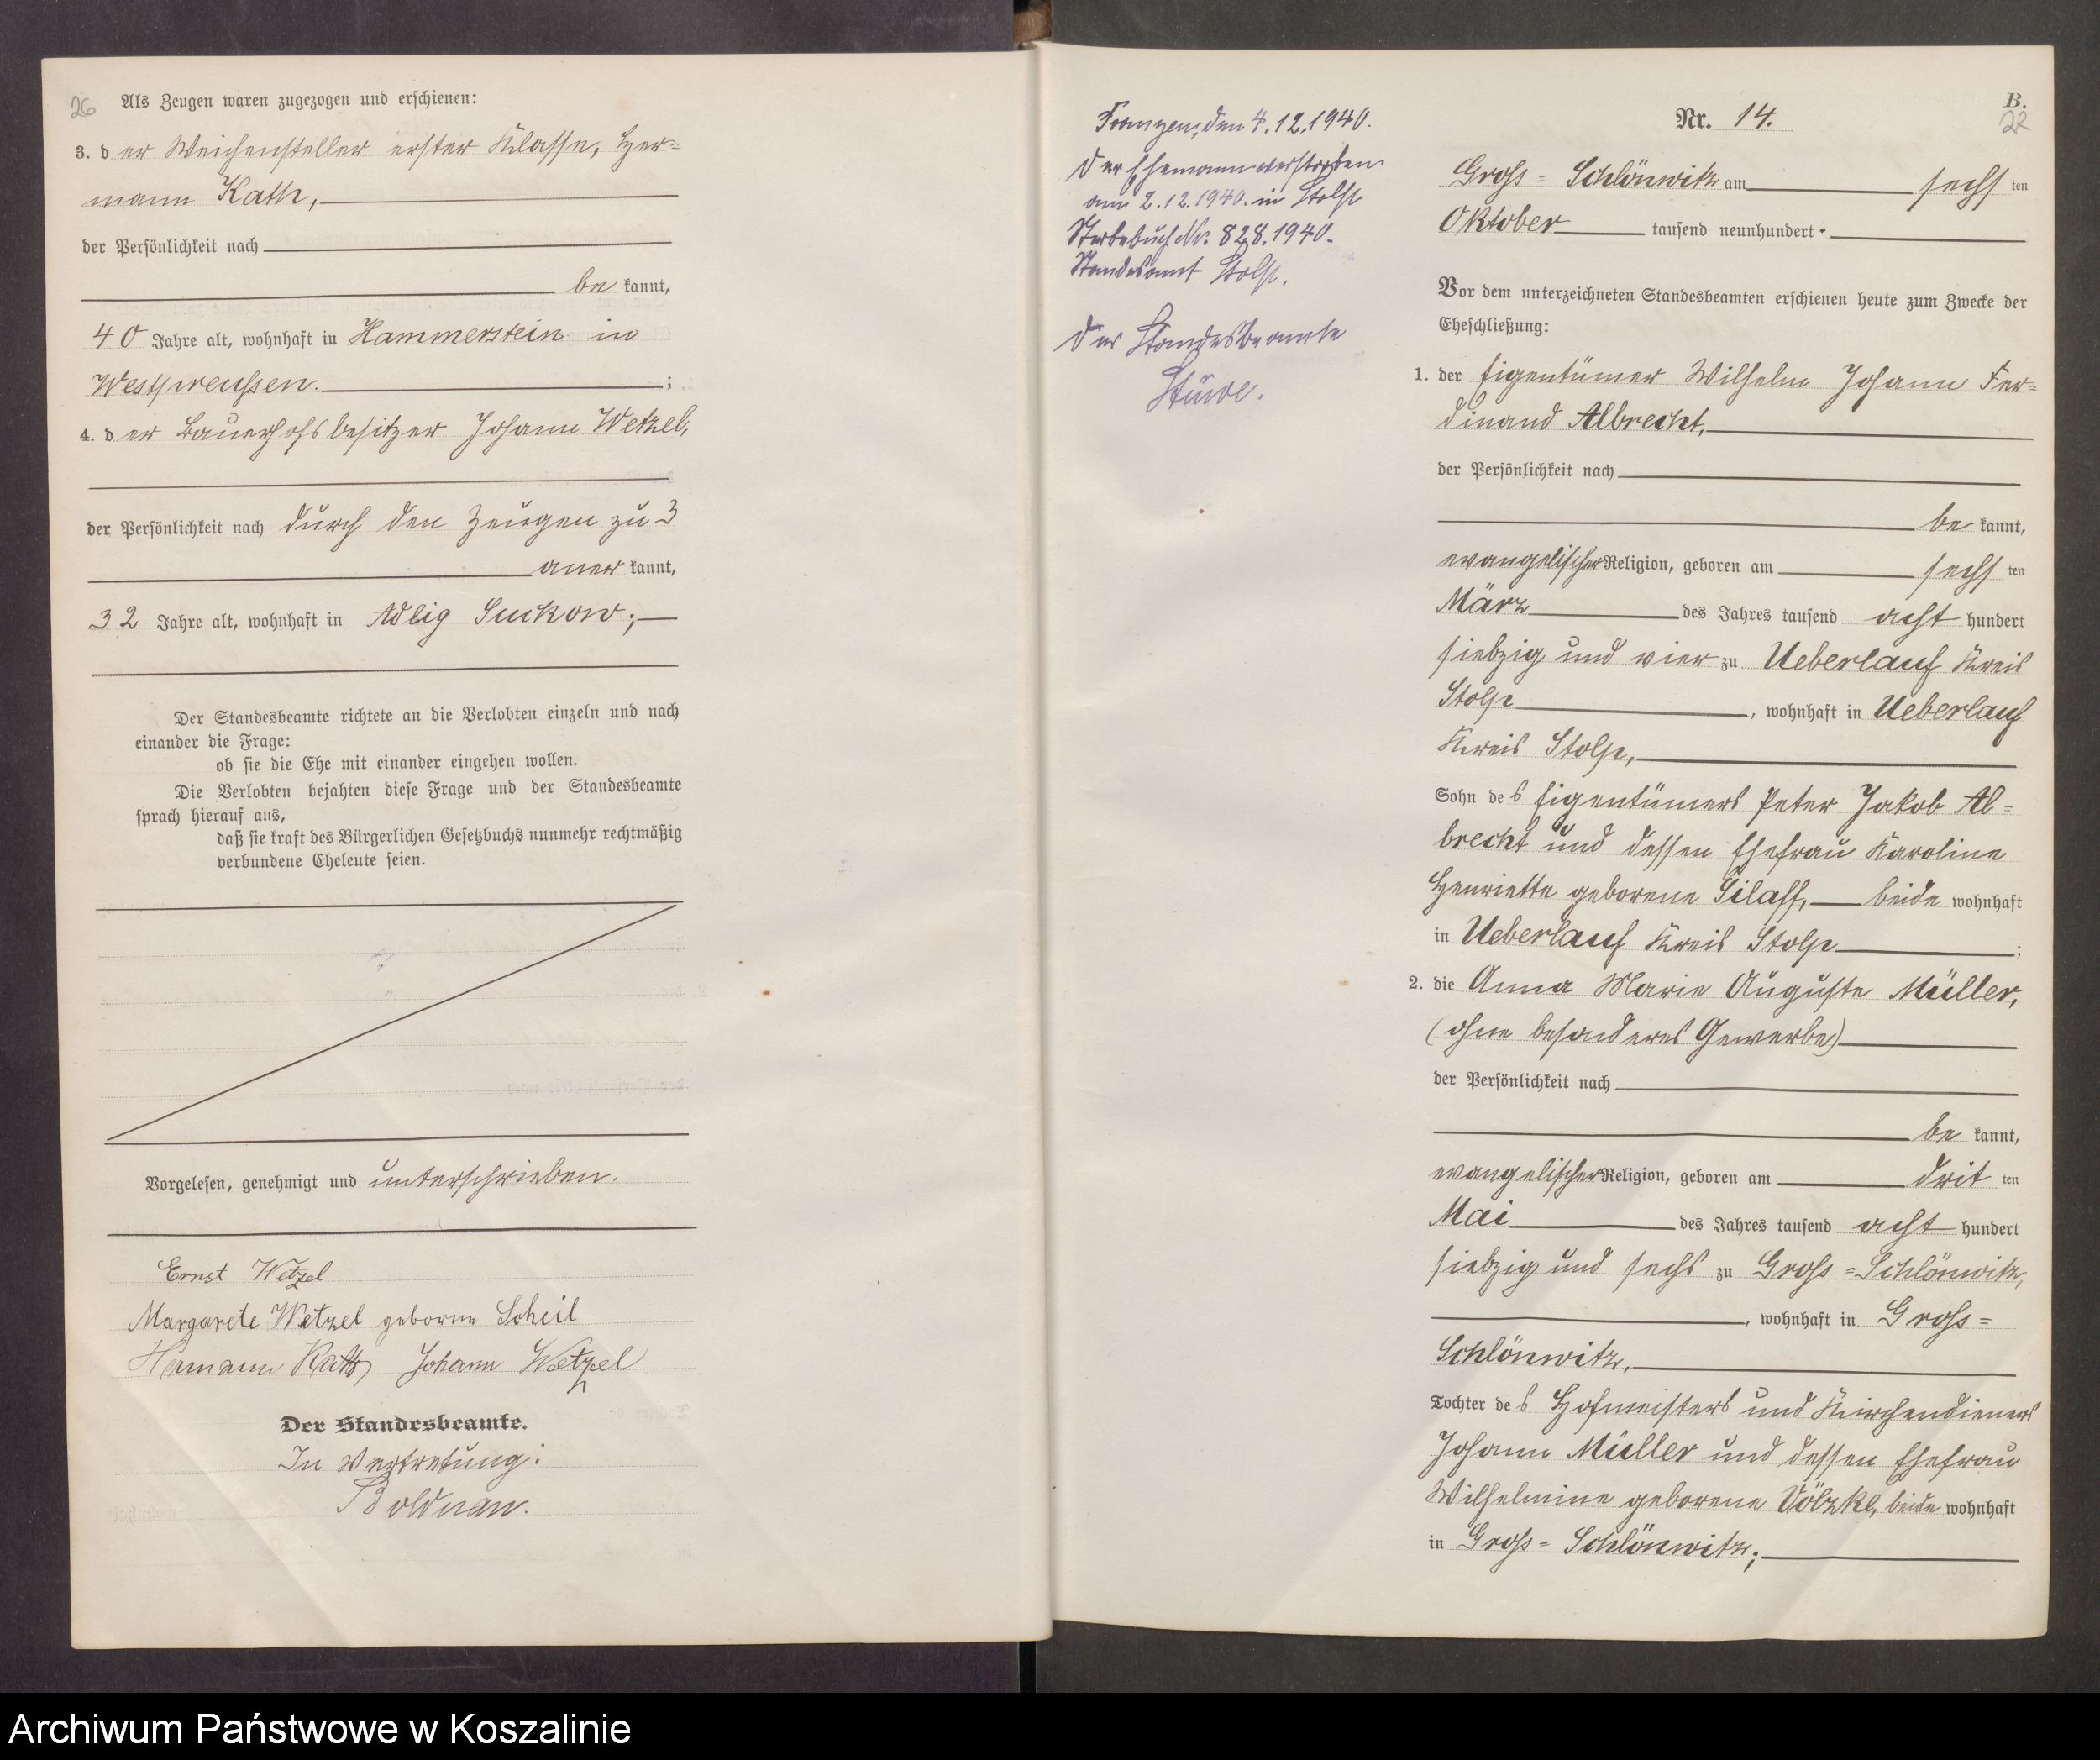 26
Als Zeugen waren zugezogen und erschienen:
3. der Weichensteller erster Klasse, Her=
mann Kath,
der Persönlichkeit nach
be kannt,
40 Jahre alt, wohnhaft in Hammerstein in
Westpreussen. ;
4. der Bauerhofsbesitzer Johann Wetzel,
der Persönlichkeit nach durch den Zeugen zu 3
aner kannt,
32 Jahre alt, wohnhaft in Adlig Suckow;
Der Standesbeamte richtete an die Verlobten einzeln und nach
einander die Frage:
ob sie die Ehe mit einander eingehen wollen.
Die Verlobten bejahten diese Frage und der Standesbeamte
sprach hierauf aus,
daß sie kraft des Bürgerlichen Gesetzbuchs nunmehr rechtmäßig
verbundene Eheleute seien.
Vorgelesen, genehmigt und unterschrieben.
Ernst Wetzel
Margarete Wetzel geborne Scheil
Hermann Kath, Johann Wetzel
Der Standesbeamte.
In Vertretung:
Bolduan.
Franzen, den 4.12.1940.
Der Ehemann verstorben
am 2.12.1940. in Stolp
Sterbebuch Nr. 828.1940.
Standesamt Stolp.
Der Standesbeamte
Stüwe.
B.
Nr. 14.
22
Gross=Schlönwitz am sechs ten
Oktober tausend neunhundert
Vor dem unterzeichneten Standesbeamten erschienen heute zum Zwecke der
Eheschließung:
1. der Eigentümer Wilhelm Johann Fer=
dinand Albrecht,
der Persönlichkeit nach
be kannt,
evangelischer Religion, geboren am sechs ten
März des Jahres tausend acht hundert
siebzig und vier zu Ueberlauf Kreis
Stolp, wohnhaft in Ueberlauf
Kreis Stolp,
Sohn des Eigentümers Peter Jakob Al=
brecht und dessen Ehefrau Karoline
Henriette geborene Silaff, beide wohnhaft
in Ueberlauf Kreis Stolp ;
2. die Anna Marie Auguste Müller,
(ohne besonderes Gewerbe)
der Persönlichkeit nach
be kannt,
evangelischer Religion, geboren am drit ten
Mai des Jahres tausend acht hundert
siebzig und sechs zu Gross=Schlönwitz,
, wohnhaft in Gross=
Schlönwitz,
Tochter des Hofmeisters und Kirchendieners
Johann Müller und dessen Ehefrau
Wilhelmine geborene Völzke, beide wohnhaft
in Gross=Schlönwitz;
Archiwum Państwowe w Koszalinie